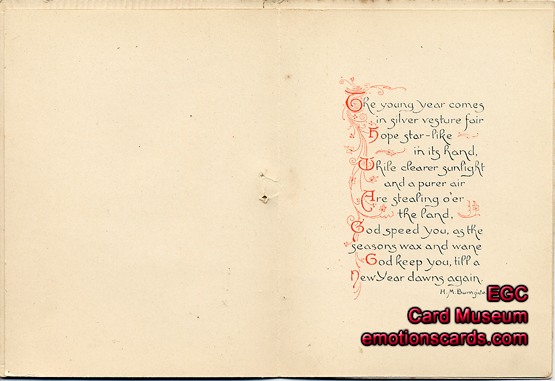 The young year comes
in silver vesture fair
Hope star-like
in its hand,
While clearer sunlight
and a purer air
Are stealing o'er
the land,
God speed you, as the
seasons wax and wane
God keep you, till a
New Year dawns again.
H. M. Burnside
EGC
Card Museum
emotionscards.com